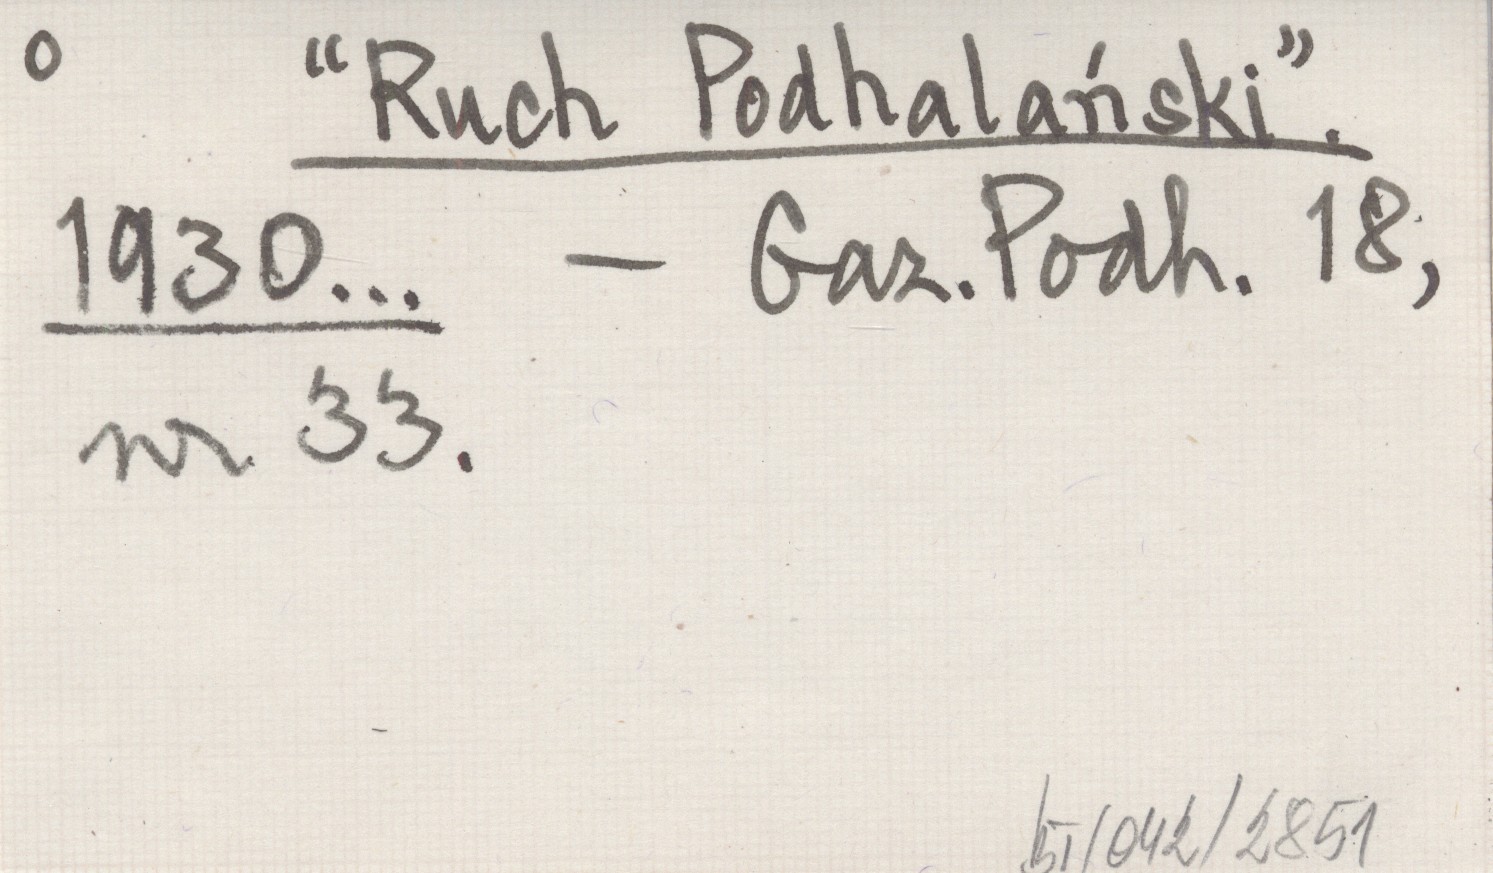 o "Ruch Podhalański".
1930... – Gaz. Podh. 18,
nr 33.
/042/2851